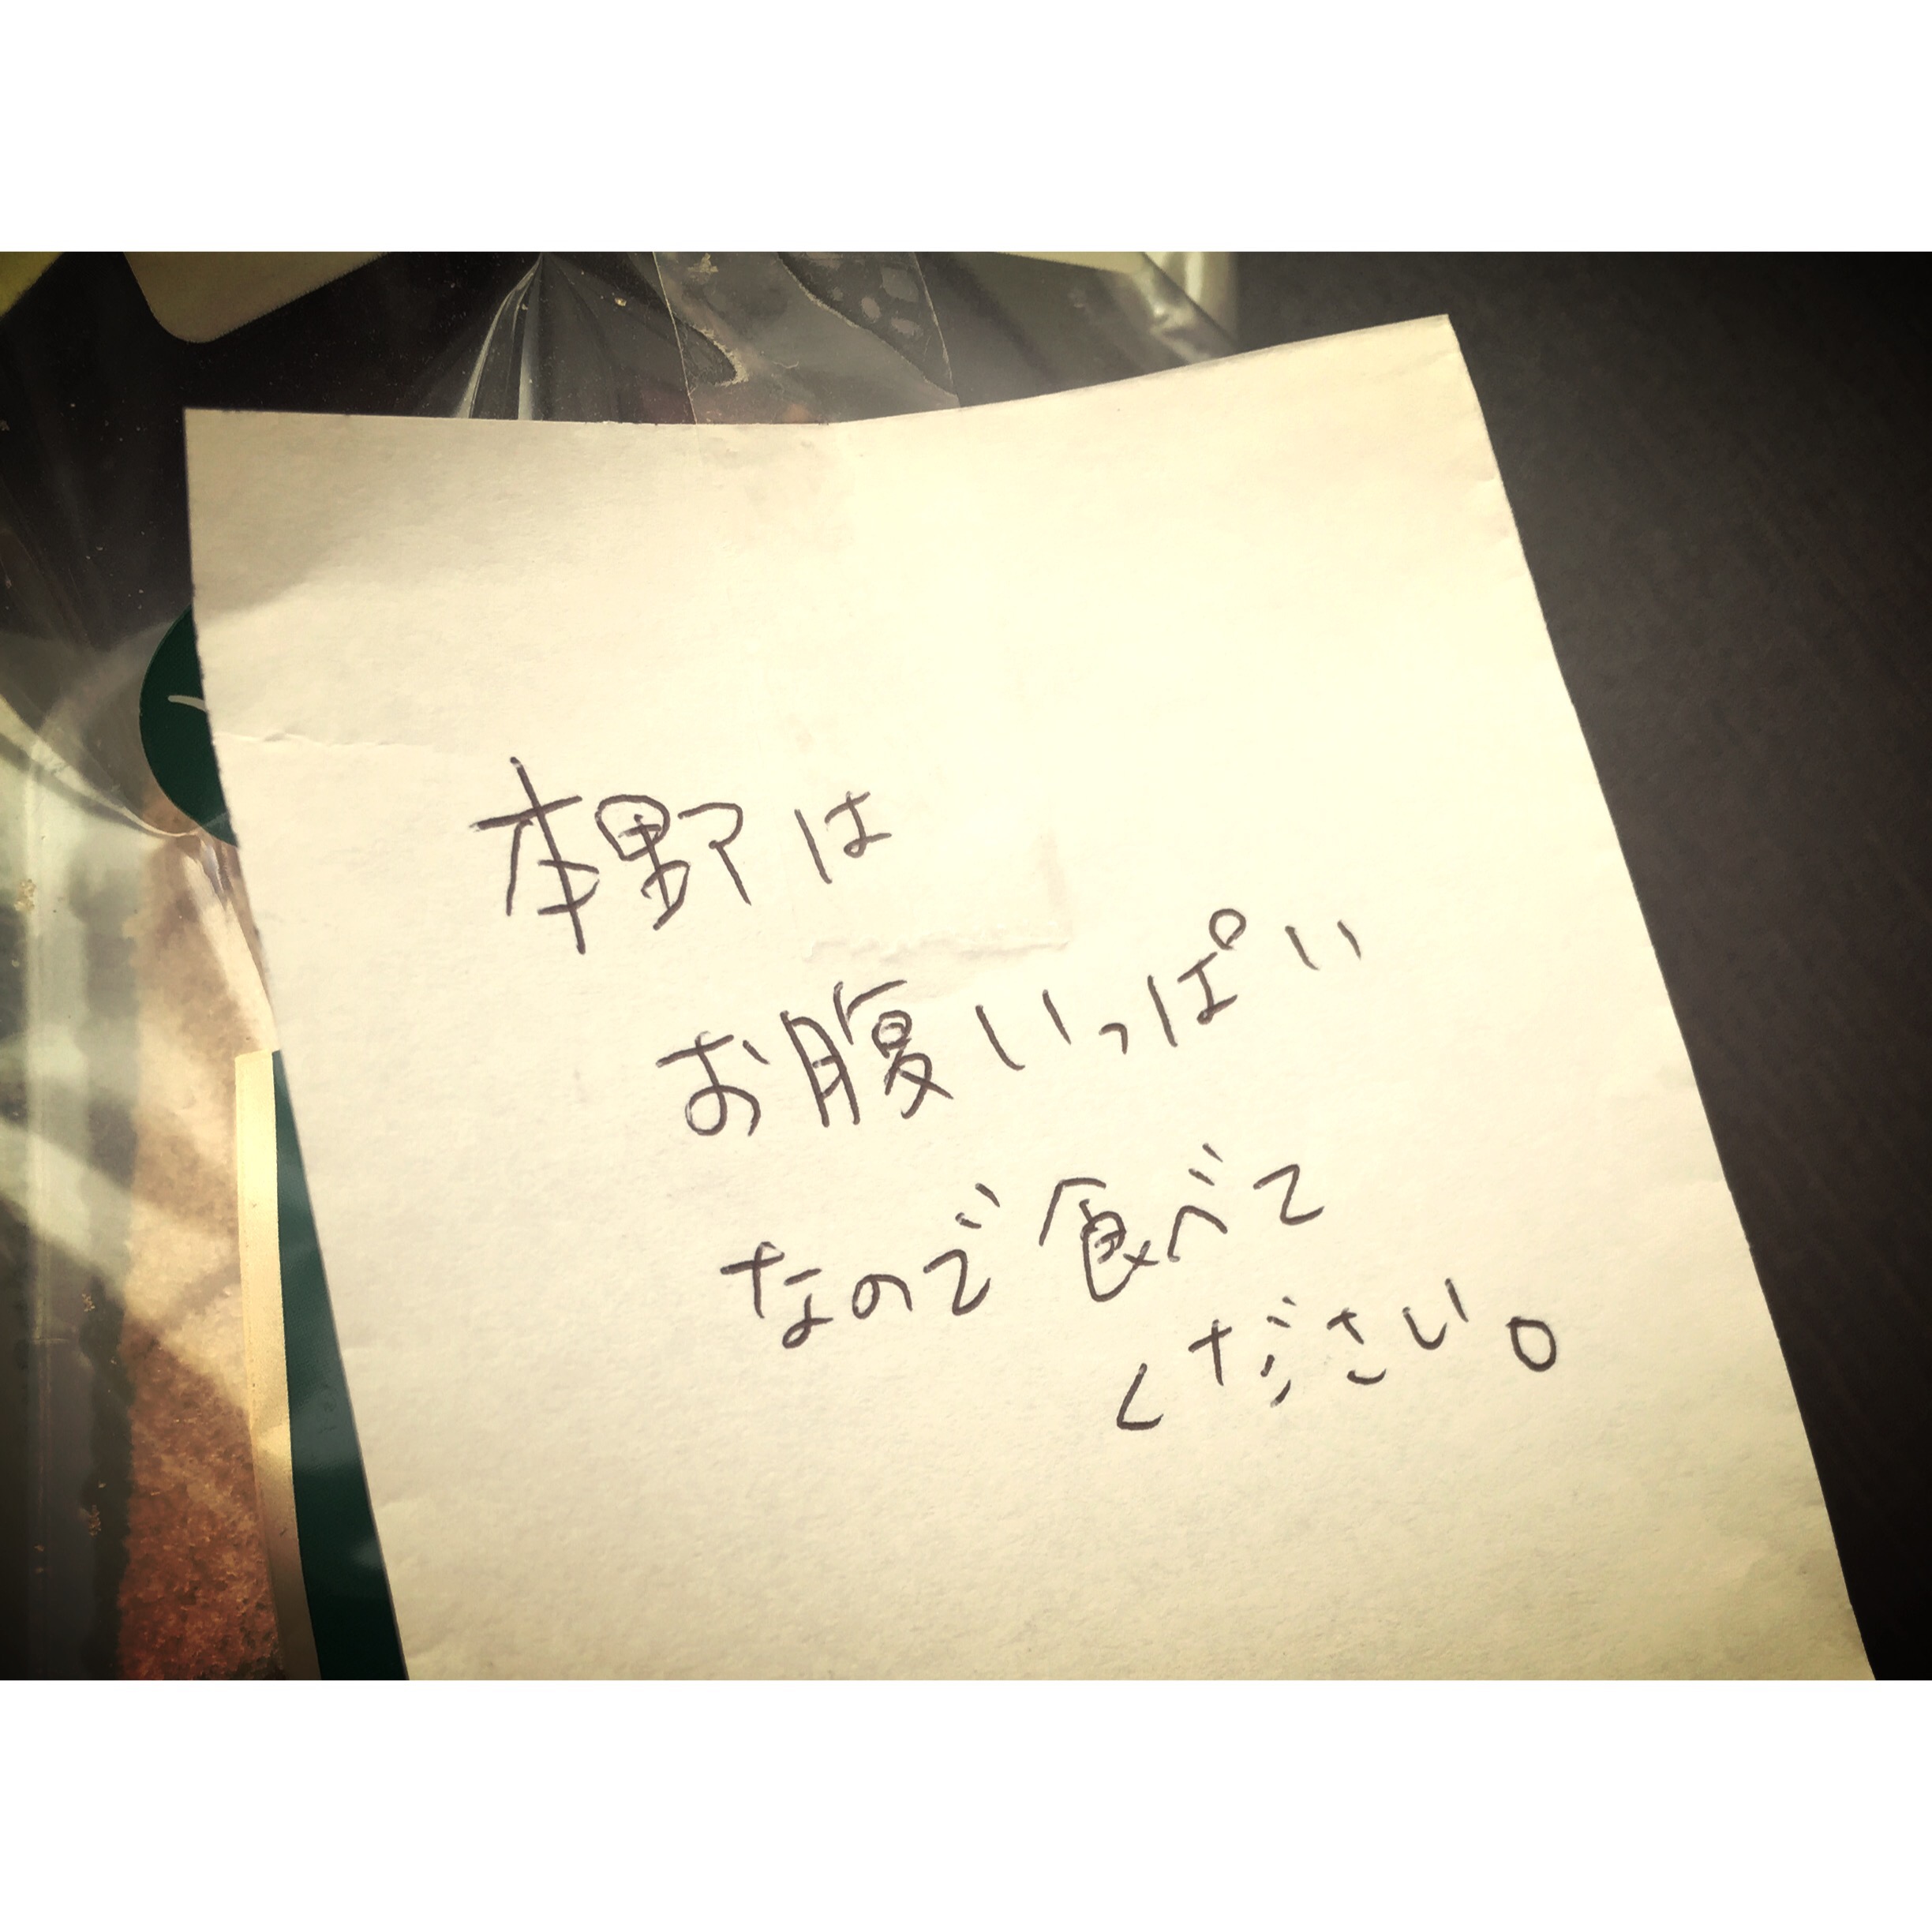 本野は
お腹いっぱい
なので食べて
ください。